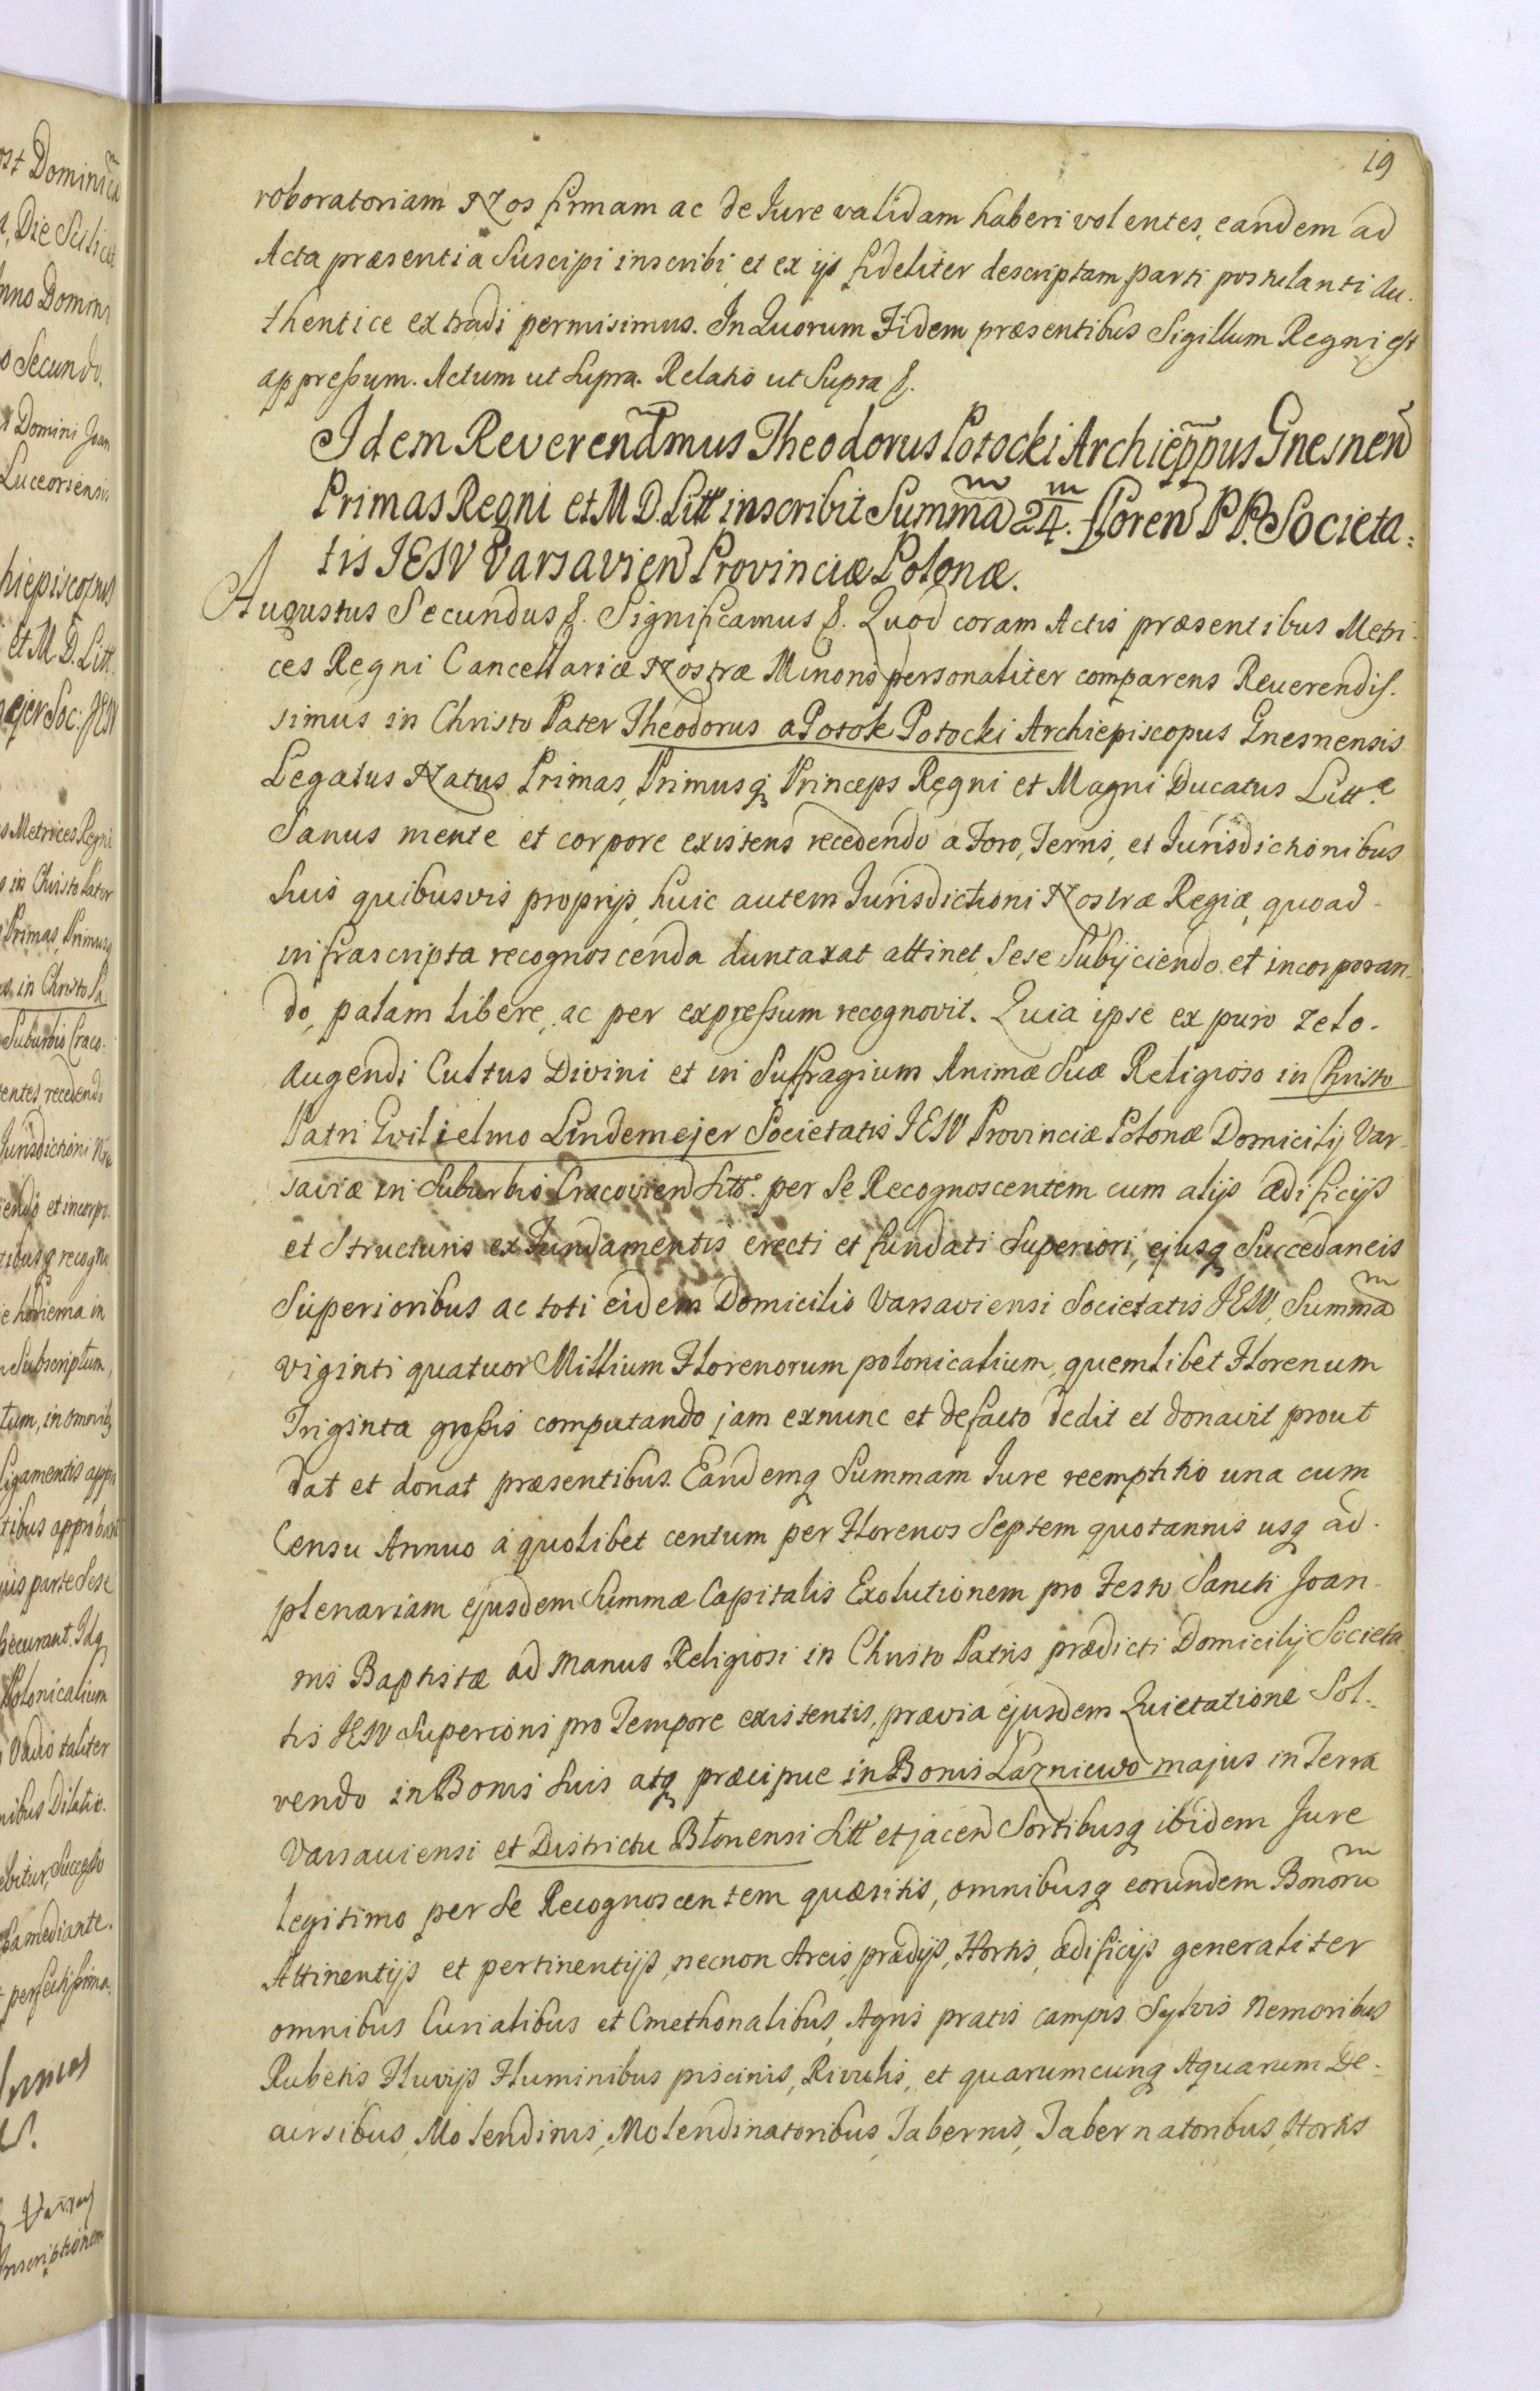 19
roboratoriam Nos firmam ac de Jure validam haberi volentes, eandem ad
Acta præsentia Suscipi inscribi et ex ijs fideliter descriptam parti postulanti Au-
thentice extradi permisimus. In Quorum Fidem præsentibus Sigillum Regni est
appressum. Actum ut Supra. Relatio ut Supra &.
Idem Reverendmus Theodorus Potocki Archieppus Gnesnen
Primas Regni et M D. Litt inscribit Summa 24 m. floren P P. Societa-
tis IESV Varsavien Provinciæ Polonæ.
Augustus Secundus &. Significamus &. Quod coram Actis præsentibus Metri-
ces Regni Cancellariæ Nostræ Minoris personaliter comparens Reverendis-
simus in Christo Pater Theodorus a Potok Potocki Archiepiscopus Gnesnensis
Legatus Natus Primas, Primusq Princeps Regni et Magni Ducatus Litt.æ
Sanus mente et corpore existens recedendo a Foro, Terris, et Jurisdictionibus
Suis quibusvis proprijs, huic autem Jurisdictioni Nostræ Regiæ, quoad
infrascripta recognoscenda duntaxat attinet, Sese Subijciendo et incorporan-
do, palam libere, ac per expressum recognovit. Quia ipse ex puro zelo
augendi Cultus Divini et in Suffragium Animæ Suæ Religioso in Christo
Patri Gvilielmo Lindemejer Societatis IESV Provinciæ Polonæ Domicilij Var-
saviæ in Suburbio Cracovien Sito. per Se Recognoscentem cum alijs ædificijs
et Structuris ex Fundamentis erecti et fundati Superiori, ejusq Succedaneis
Superioribus ac toti eidem Domicilio Varsaviensi Societatis IESV, Summa
viginti quatuor Millium Florenorum polonicalium, quemlibet Florenum
Triginta grossis computando jam exnunc et defacto dedit et donavit prout
dat et donat præsentibus. Eandemq Summam Jure reemptitio una cum
Censu Annuo à quolibet centum per Florenos Septem quotannis usq ad
plenariam ejusdem Summæ Capitalis Exolutionem pro Festo Sancti Joan-
nis Baptistæ ad manus Religiosi in Christo Patris prædicti Domicilij Societa
tis IESV Superioris pro Tempore existentis, prævia ejusdem Quietatione Sol-
vendo in Bonis Suis atq præcipue in Bonis Łazniewo majus in Terra
Varsaviensi et Districtu Błonensi Sitt et jacen Sortibusq ibidem Jure
legitimo per Se Recognoscentem quæsitis, omnibusq eorundem Bonoru
Attinentijs et pertinentijs, necnon Areis, prædijs, Hortis, ædificijs generaliter
omnibus Curialibus et Cmethonalibus, Agris pratis campis Sylvis Nemoribus
Rubetis Fluvijs Fluminibus piscinis, Rivulis, et quarumcunq Aquarum De-
cursibus, Molendinis, Molendinatoribus, Tabernis, Tabernatoribus, Hortis